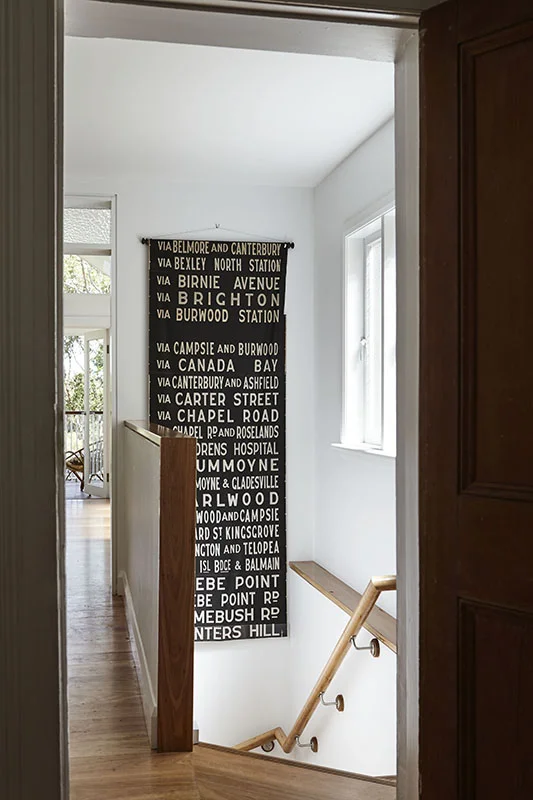 VIA BELMORE AND CANTERBURY
VIA BEXLEY NORTH STATION
VIA BIRNIE AVENUE
VIA BRIGHTON
VIA BURWOOD STATION
VIA CAMPSIE AND BURWOOD
VIA CANADA BAY
VIA CANTERBURY AND ASHFIELD
VIA CARTER STREET
VIA CHAPEL ROAD
CHAPEL RD AND ROSELANDS
DRENS HOSPITAL
UMMOYNE
MOYNE & GLADESVILLE
ARLWOOD
WOOD AND CAMPSIE
ARD ST KINGSGROVE
NGTON AND TELOPEA
ISL BDGE & BALMAIN
EBE POINT
EBE POINT RD
MEBUSH RD
NTERS HILL